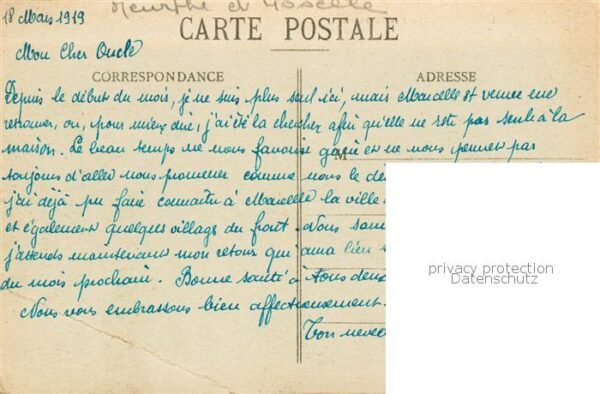 18 Mars 1919
Meurthe et Moselle
CARTE POSTALE
Mon Cher Oncle
CORRESPONDANCE
ADRESSE
Depuis le début du mois, je ne suis plus seul ici, mais Marcelle est venue me
retrouver, ou, pour mieux dire, j'ai été la chercher afin qu'elle ne reste pas seule à la
maison. Le beau temps ne nous favorise guère et ne nous permet pas
M
toujours d'aller nous promener comme nous le
j'ai déjà pu faire connaitre à Marcelle la ville
et également quelques villages du front. Nous
j'attends maintenant mon retour qui aura lieu
du mois prochain. Bonne santé à tous deux
Nous vous embrassons bien affectueusement.
Ton neveu
privacy protection
Datenschutz